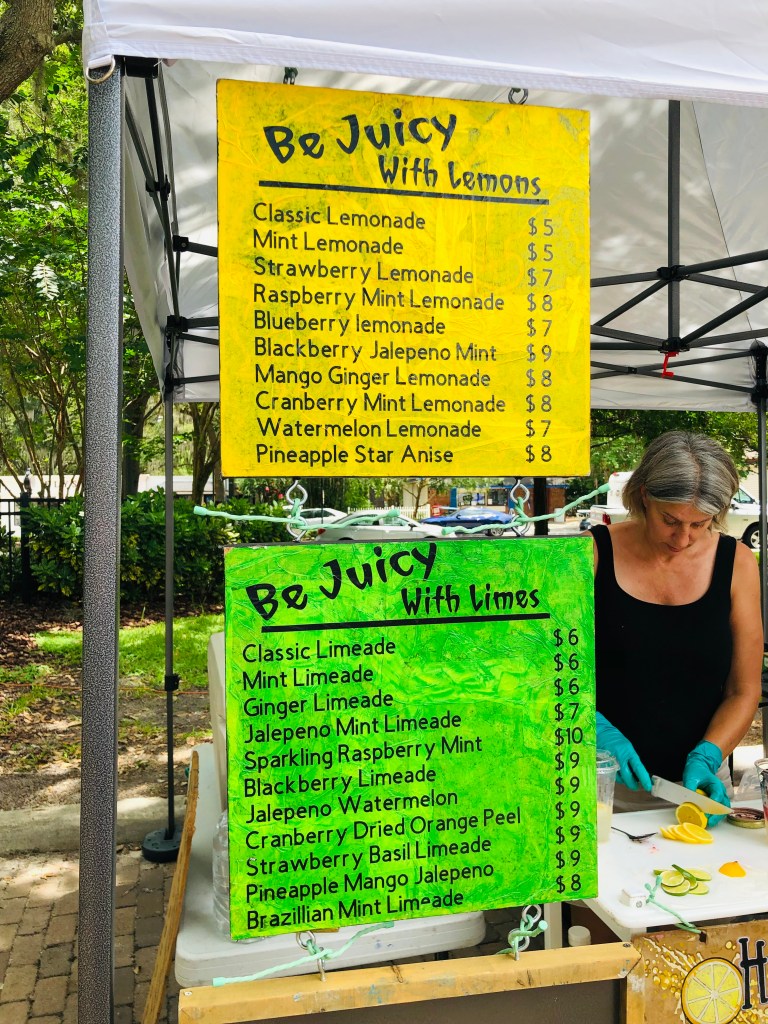 Be Juicy
With Lemons
Classic Lemonade $5
Mint Lemonade $5
Strawberry Lemonade $7
Raspberry Mint Lemonade $8
Blueberry lemonade $7
Blackberry Jalepeno Mint $9
Mango Ginger Lemonade $8
Cranberry Mint Lemonade $8
Watermelon Lemonade $7
Pineapple Star Anise $8
Be Juicy
With Limes
Classic Limeade $6
Mint Limeade $6
Ginger Limeade $6
Jalepeno Mint Limeade $7
Sparkling Raspberry Mint $10
Blackberry Limeade $9
Jalepeno Watermelon $9
Cranberry Dried Orange Peel $9
Strawberry Basil Limeade $9
Pineapple Mango Jalepeno $9
Brazillian Mint Limeade $8